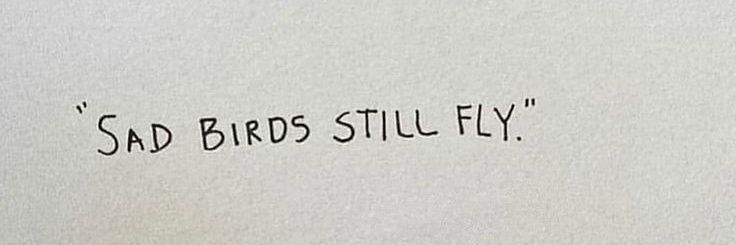 "SAD BIRDS STILL FLY."